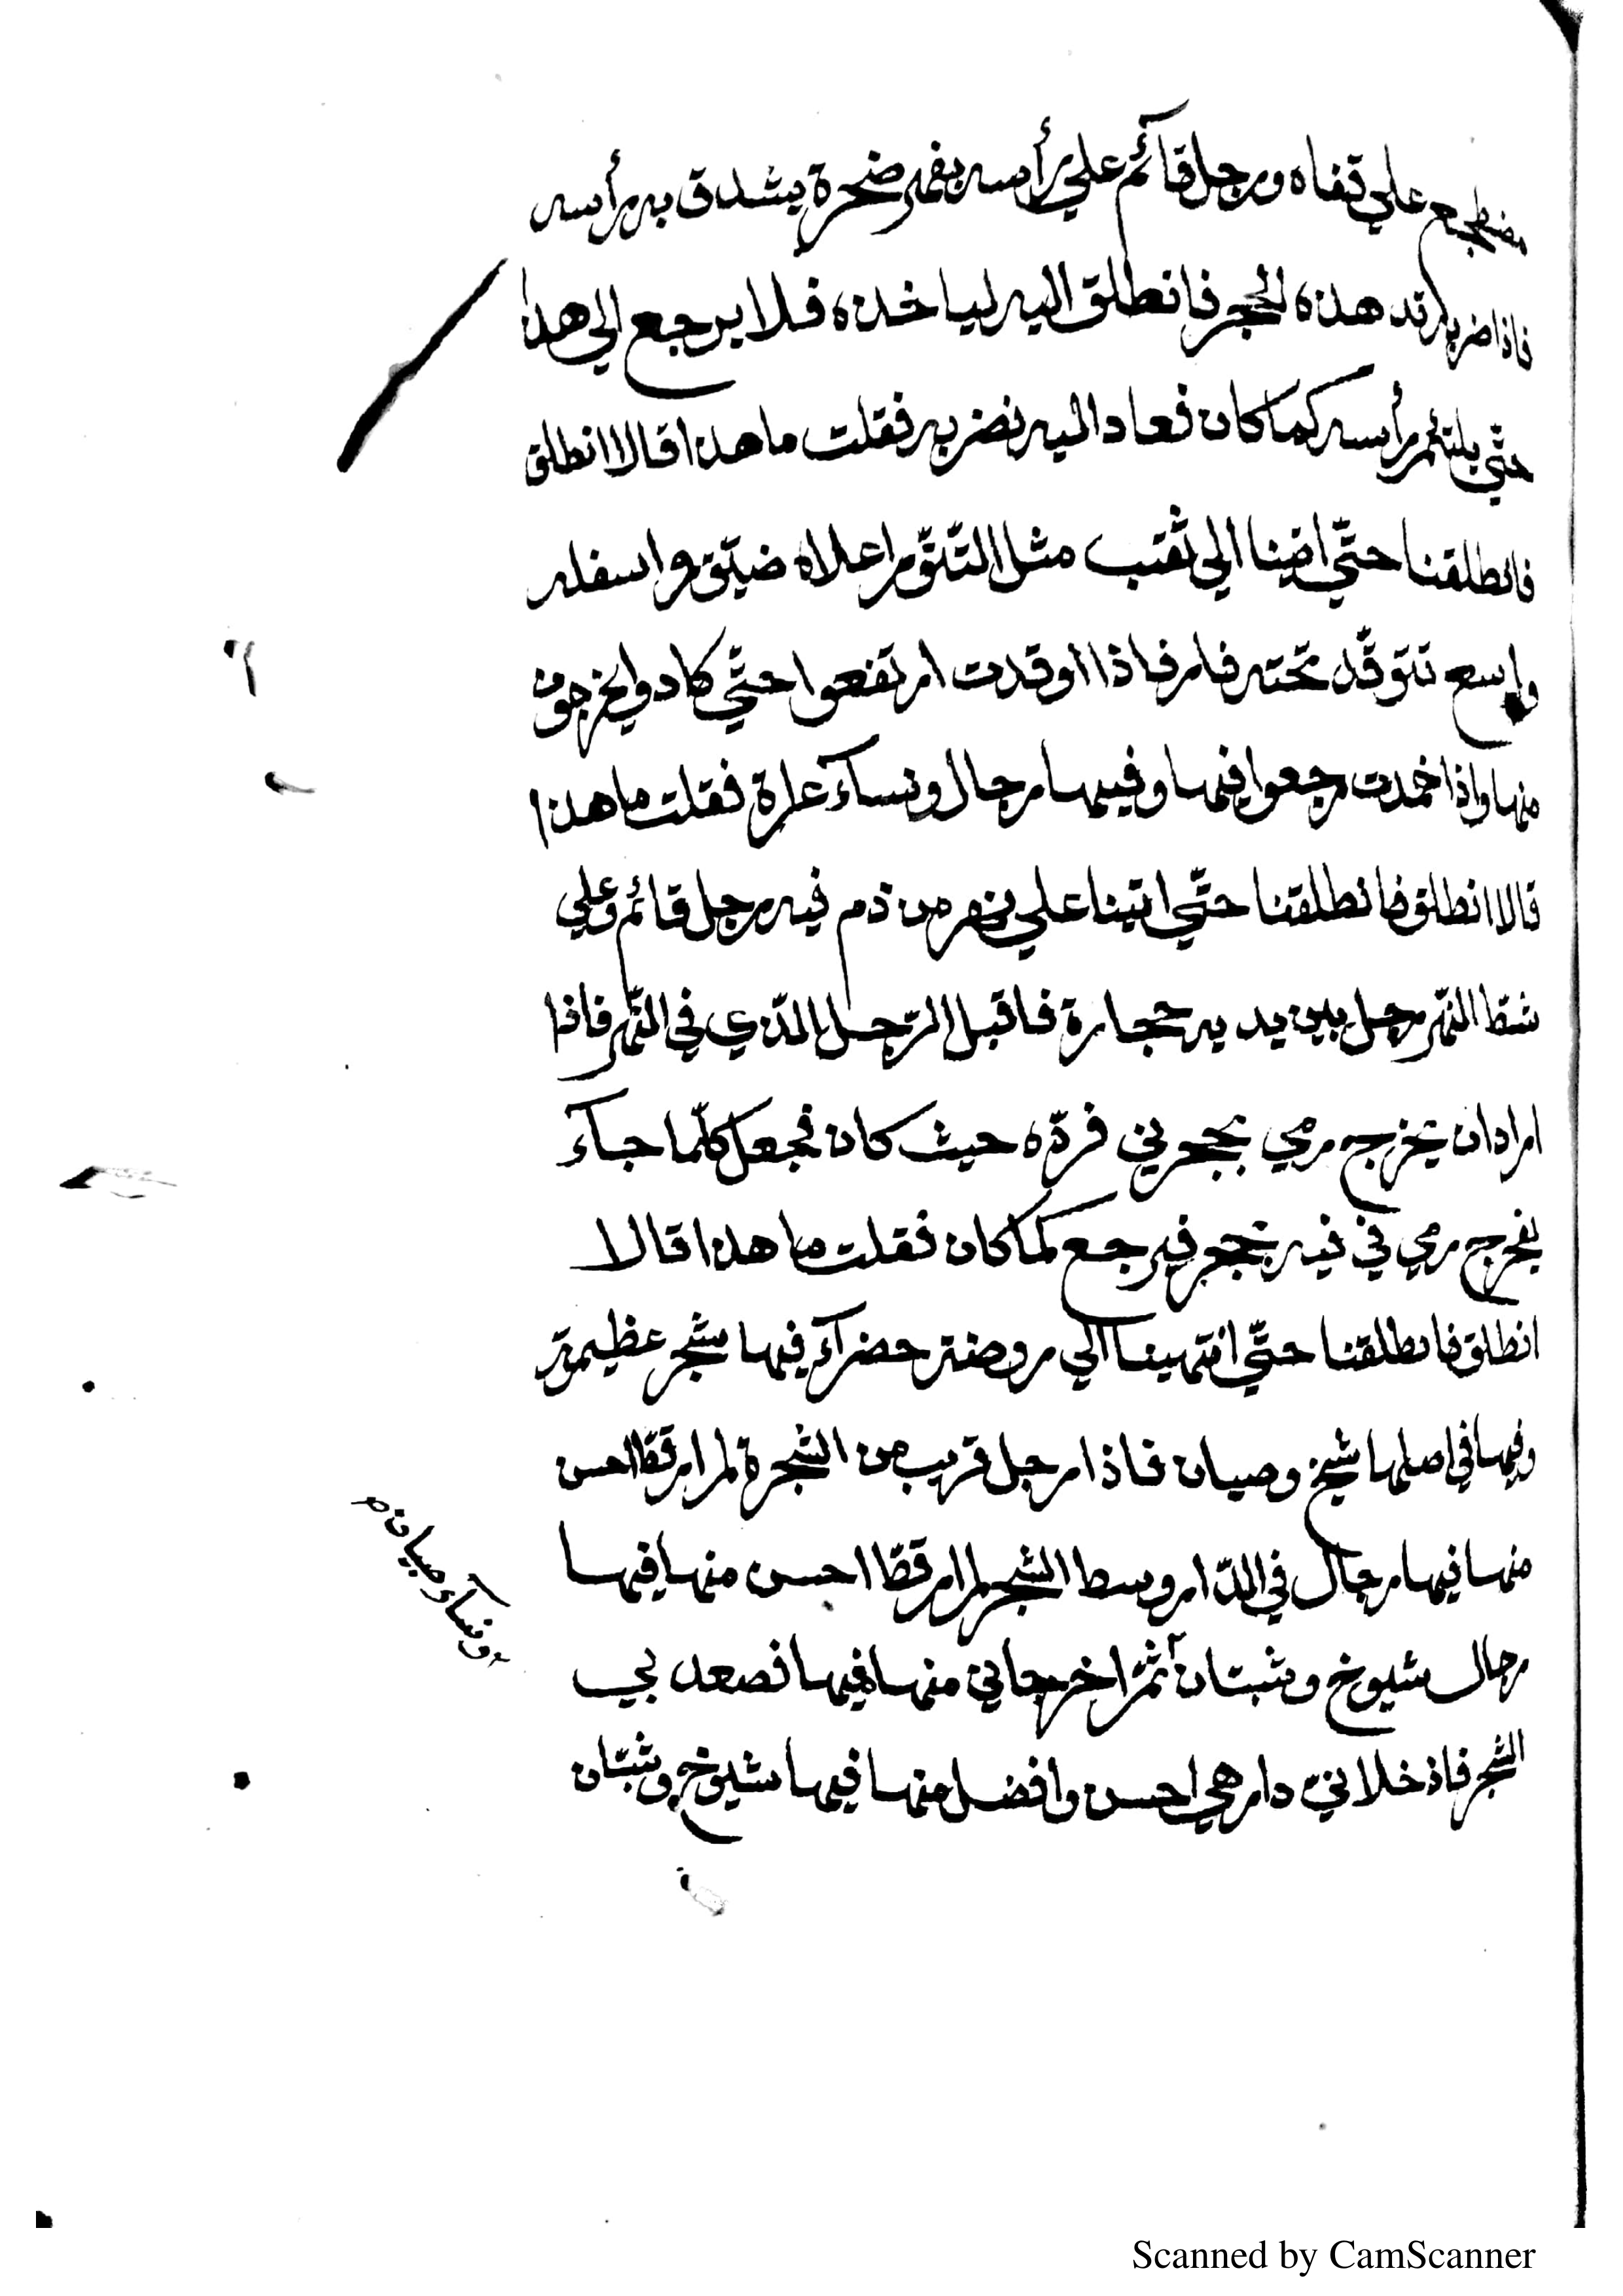 مضطجع علي قفاه ورجل قائم علي رأسه بفهر صخرة يشدق به رأسه
فاذا ضربه تدهده الحجر فانطلق اليه لياخذه فلا يرجع الي هذا
حتّي يلتئم رأسه كما كان فعاد اليه فضربه فقلت ما هذا قالا انطلق
فانطلقنا حتّي اتينا الي ثقب مثل التّنّور اعلاه ضيّق واسفله
واسع تتوقّد تحته نار فاذا اوقدت ارتفعوا حتّي كادوا يخرجون
منها واذا خمدت رجعوا فيها وفيها رجال ونسآء عراة فقلت ما هذا
قالا انطلق فانطلقنا حتّي اتينا علي نهر من دم فيه رجل قائم وعلي
شطّ النّهر رجل بين يديه حجارة فاقبل الرّجل الّذي في النّهر فاذا
اراد ان يخرج رمي بحجر في فردّه حيث كان فجعل كلّما جآء
يخرج رمي في فيه بحجر فيرجع كما كان فقلت ما هذا قالا
انطلق فانطلقنا حتّي انتهينا الي روضة خضرآء فيها شجر عظيمة
وفيها في اصلها شيخ وصبيان فاذا رجل قريب من الشجرة لم ار قطّ احسن
منها فيها رجال في الدّار وسط الشجر لم ار قطّ احسن منها فيها
رجال شيوخ وشبّان ثمّ اخرجاني منها فصعد بي
الشجر فادخلاني دار هي احسن وافضل منها فيها شيوخ وشبّان
ونسآء وصبيان صح
Scanned by CamScanner